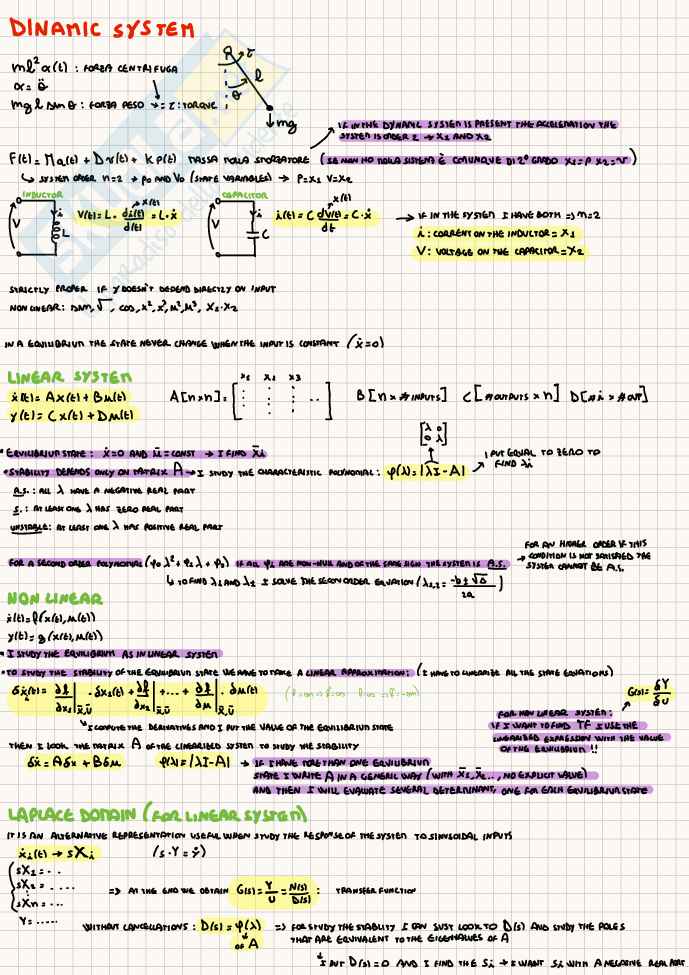 DINAMIC SYSTEM
ml² α(t) : FORZA CENTRIFUGA
α = θ̈
mgl SIN θ : FORZA PESO
τ : TORQUE
τ
θ
l
mg
IF IN THE DYNAMIC SYSTEM IS PRESENT THE ACCELERATION THE
SYSTEM IS ORDER 2 → X1 AND X2
F(t) = Ma(t) + Dv(t) + KP(t) MASSA MOLLA SMORZATORE (SE NON HO MOLLA SISTEMA È COMUNQUE DI 2° GRADO X1=P X2=V)
↳ SYSTEM ORDER n=2 → P0 AND V0 (STATE VARIABLES) → P=X1 V=X2
INDUCTOR
CAPACITOR
V
i
L
x(t)
V(t) = L · di(t)/d(t) = L · ẋ
V
i
C
x(t)
i(t) = C dV(t)/dt = C · ẋ
→ IF IN THE SYSTEM I HAVE BOTH => n=2
i : CURRENT ON THE INDUCTOR = X1
V : VOLTAGE ON THE CAPACITOR = X2
STRICTLY PROPER IF Y DOESN'T DEPEND DIRECTLY ON INPUT
NON LINEAR: SIN, √, COS, x², x³, u², u³, X1·X2
IN A EQUILIBRIUM THE STATE NEVER CHANGE WHEN THE INPUT IS CONSTANT (ẋ=0)
LINEAR SYSTEM
ẋ(t) = Ax(t) + Bu(t)
y(t) = Cx(t) + Du(t)
x1 x2 x3
A[n×n] =
B[n × #INPUTS] C[#OUTPUTS × n] D[#i × #OUT]
[λ 0
0 λ]
• EQUILIBRIUM STATE: ẋ=0 AND ū=CONST → I FIND x̄i
• STABILITY DEPENDS ONLY ON MATRIX A → I STUDY THE CHARACTERISTIC POLYNOMIAL: φ(λ)=|λI-A|
I PUT EQUAL TO ZERO TO
FIND λi
A.S.: ALL λ HAVE A NEGATIVE REAL PART
S.: AT LEAST ONE λ HAS ZERO REAL PART
UNSTABLE: AT LEAST ONE λ HAS POSITIVE REAL PART
FOR A SECOND ORDER POLYNOMIAL (φ0 λ² + φ1 λ + φ2) IF ALL φi ARE NON-NULL AND OF THE SAME SIGN THE SYSTEM IS A.S.
→ FOR AN HIGHER ORDER IF THIS
CONDITION IS NOT SATISFIED THE
SYSTEM CANNOT BE A.S.
↳ TO FIND λ1 AND λ2 I SOLVE THE SECOND ORDER EQUATION (λ1,2 = -b±√Δ / 2a)
NON LINEAR
ẋ(t) = f(x(t), u(t))
y(t) = g(x(t), u(t))
• I STUDY THE EQUILIBRIUM AS IN LINEAR SYSTEM
• TO STUDY THE STABILITY OF THE EQUILIBRIUM STATE WE HAVE TO MAKE A LINEAR APPROXIMATION: (I HAVE TO LINEARIZE ALL THE STATE EQUATIONS)
δẋi(t) = ∂f/∂x1|x̄,ū · δx1(t) + ∂f/∂x2|x̄,ū + ... + ∂f/∂u|x̄,ū · δu(t)
G(s) = δY/δU
FOR NON LINEAR SYSTEM:
IF I WANT TO FIND TF I USE THE
LINEARISED EXPRESSION WITH THE VALUE
OF THE EQUILIBRIUM !!
↳ I COMPUTE THE DERIVATIVES AND I PUT THE VALUE OF THE EQUILIBRIUM STATE
THEN I LOOK THE MATRIX A OF THE LINEARISED SYSTEM TO STUDY THE STABILITY
δẋ = Aδx + Bδu φ(λ)=|λI-A| → IF I HAVE MORE THAN ONE EQUILIBRIUM
STATE I WRITE A IN A GENERIC WAY (WITH x̄1, x̄2.., NO EXPLICIT VALUE)
AND THEN I WILL EVALUATE SEVERAL DETERMINANT, ONE FOR EACH EQUILIBRIUM STATE
LAPLACE DOMAIN (FOR LINEAR SYSTEM)
IT IS AN ALTERNATIVE REPRESENTATION USEFUL WHEN STUDY THE RESPONSE OF THE SYSTEM TO SINUSOIDAL INPUTS
ẋi(t) → sXi (s·Y = ẏ)
sX1 = ...
sX2 = .....
sXn = ...
Y = .....
=> AT THE END WE OBTAIN G(s) = Y/U = N(s)/D(s) : TRANSFER FUNCTION
WITHOUT CANCELLATIONS: D(s) = φ(λ)
OF A
=> FOR STUDY THE STABILITY I CAN JUST LOOK TO D(s) AND STUDY THE POLES
THAT ARE EQUIVALENT TO THE EIGENVALUES OF A
↳ I PUT D(s)=0 AND I FIND THE Si → I WANT Si WITH A NEGATIVE REAL PART